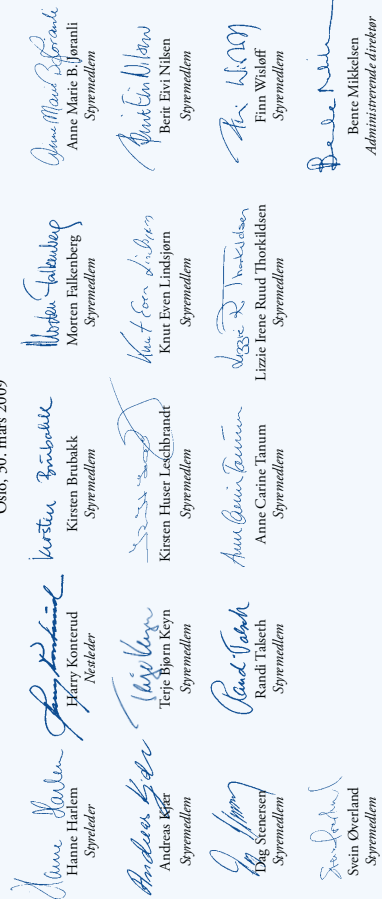 Oslo, 30. mars 2009
Hanne Harlem
Hanne Harlem
Styreleder
Harry Konterud
Nestleder
Kirsten Brubakk
Kirsten Brubakk
Styremedlem
Morten Falkenberg
Morten Falkenberg
Styremedlem
Anne Marie B. Jøranli
Styremedlem
Andreas Kjær
Andreas Kjær
Styremedlem
Terje Keyn
Terje Bjørn Keyn
Styremedlem
Kirsten Huser Leschbrandt
Styremedlem
Knut Even Lindsjørn
Knut Even Lindsjørn
Styremedlem
Berit Eivi Nilsen
Berit Eivi Nilsen
Styremedlem
Dag Stenersen
Styremedlem
Randi Talseth
Randi Talseth
Styremedlem
Anne Carine Tanum
Anne Carine Tanum
Styremedlem
Lizzie R Thorkildsen
Lizzie Irene Ruud Thorkildsen
Styremedlem
Finn Wisløff
Finn Wisløff
Styremedlem
Svein Øverland
Styremedlem
Bente Mikkelsen
Administrerende direktør